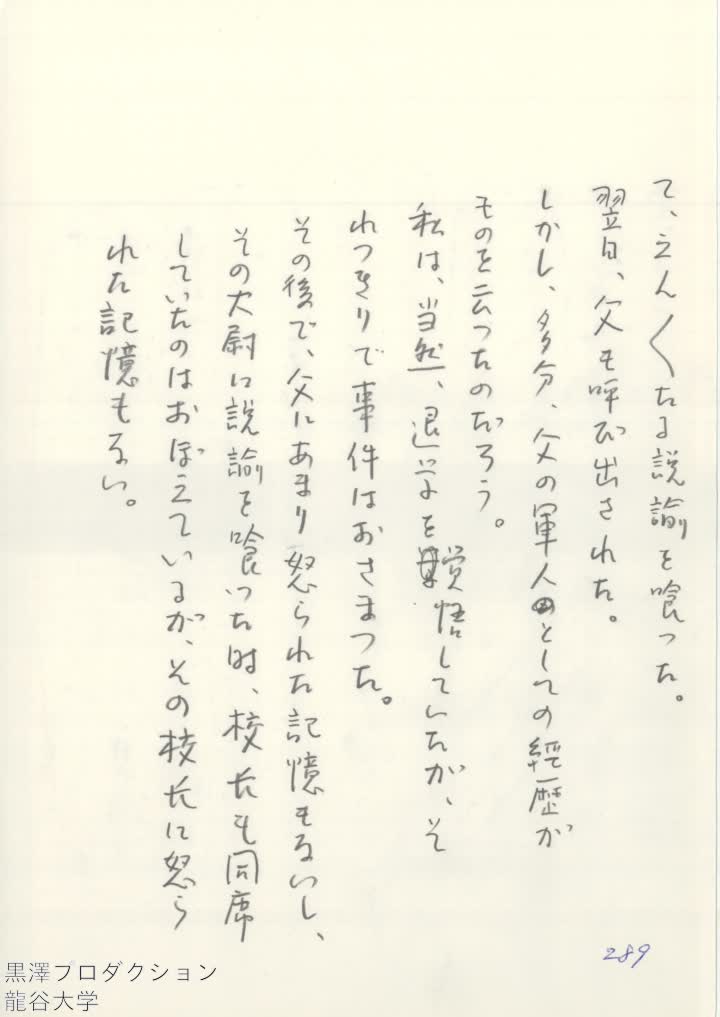 て、えん〳〵たる説諭を喰った。
翌日、父も呼び出された。
しかし、多分、父の軍人としての経歴が
ものを云つたのだろう。
私は、当然、退学を覚悟していたが、そ
れつきりで事件はおさまつた。
その後で、父にあまり怒られた記憶もないし、
その大尉に説諭を喰った時、校長も同席
していたのはおぼえているが、その校長に怒ら
れた記憶もない。
289
黒澤プロダクション
龍谷大学